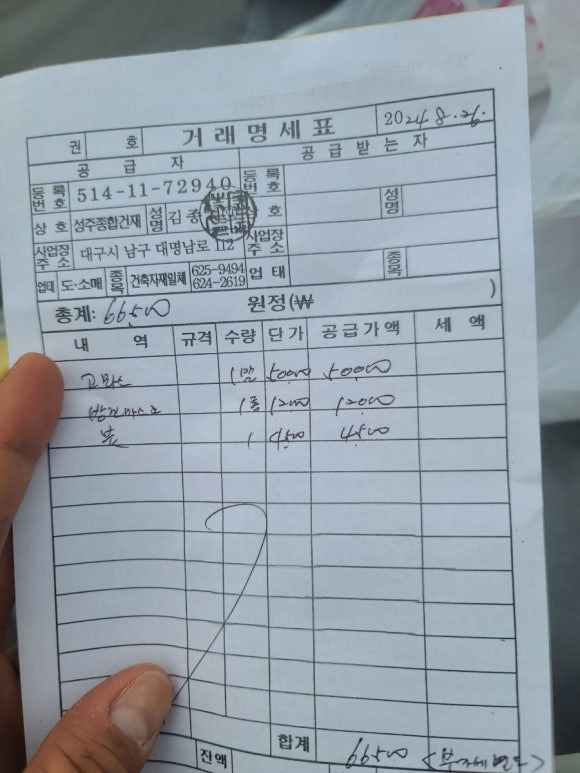 권 호 거래명세표 2024. 8. 26.
공급자 공급받는자
등록번호 514-11-72940 등록번호
상호 성주종합건재 성명 김종 상호 성명
사업장주소 대구시 남구 대명남로 112 사업장주소
업태 도·소매 종목 건축자재일체 625-9494 624-2619 업태 종목
총계: 66500 원정(₩ )
내역 규격 수량 단가 공급가액 세액
1 50000 50000
방진마스크 1통 12000 12000
붓 1 4500 4500
합계 66500 <부가세별도>
잔액